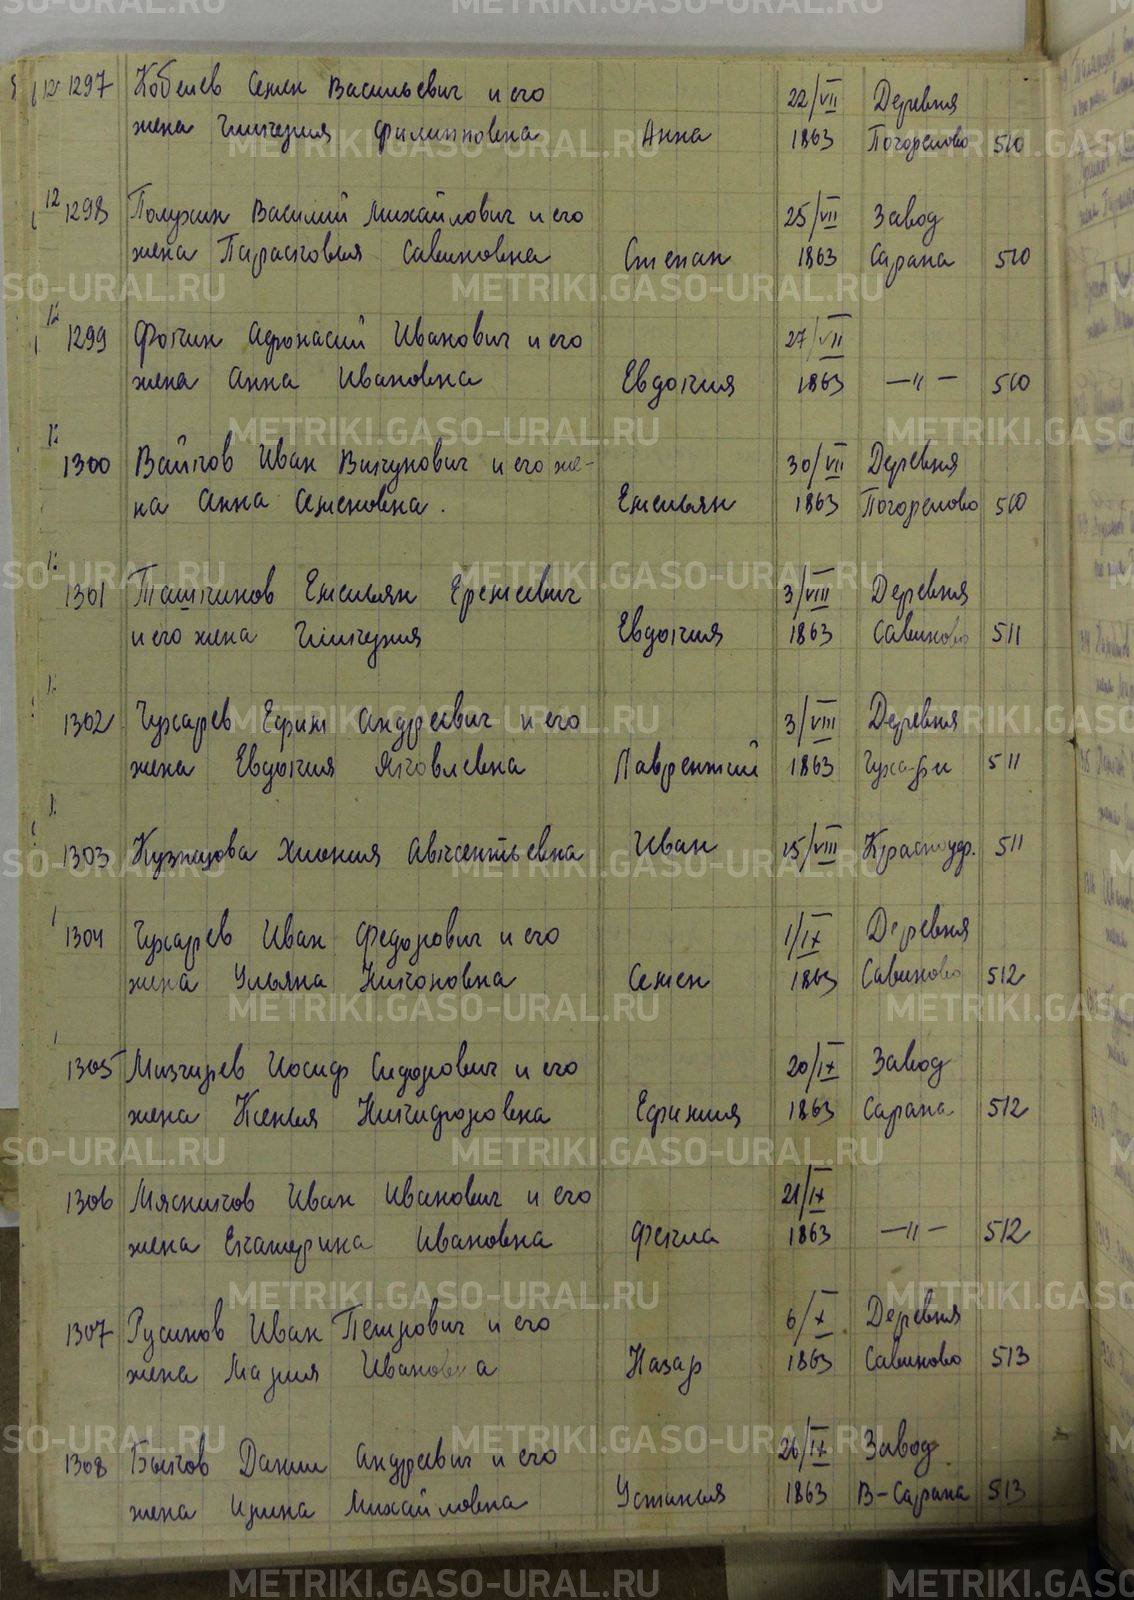 1297 Кобелев Семен Васильевич и его 22/VII Деревня
жена Гликерия Филипповна Анна 1863 Погорелово 510
1298 Полухин Василий Михайлович и его 25/VII Завод
жена Парасковья Савиновна Степан 1863 Сарана 510
1299 Фокин Афонасий Иванович и его 27/VII
жена Анна Ивановна Евдокия 1863 —〃— 510
1300 Вайков Иван Викулович и его же-
на Анна Семеновна. Емельян 30/VII 1863 Деревня Погорелово 510
1301 Ташкинов Емельян Еремеевич 3/VIII Деревня
и его жена Гликерия Евдокия 1863 Савиново 511
1302 Чухарев Ефим Андреевич и его 3/VIII Деревня
жена Евдокия Яковлевна Лаврентий 1863 511
1303 Кузнецова Хиония Авксентьевна Иван 15/VIII Красноуф. 511
1304 Чухарев Иван Федорович и его 1/IX Деревня
жена Ульяна Никоновна Семен 1863 Савиново 512
1305 Мизгирев Иосиф Сидорович и его 20/IX Завод
жена Ксенья Никифоровна Ефимия 1863 Сарана 512
1306 Мясников Иван Иванович и его 21/IX
жена Екатерина Ивановна Фекла 1863 —〃— 512
1307 Русинов Иван Петрович и его 6/X Деревня
жена Мария Ивановна Назар 1863 Савиново 513
1308 Быков Данил Андреевич и его 26/IX Завод
жена Ирина Михайловна Устинья 1863 В-Сарана 513
METRIKI.GASO-URAL.RU